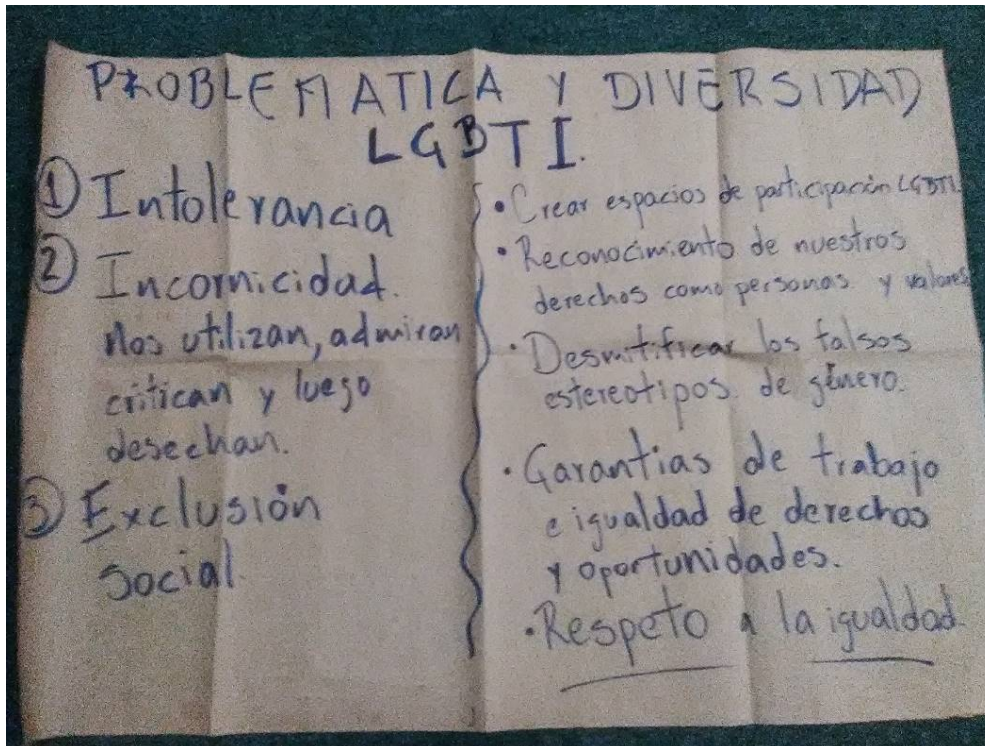 PROBLEMATICA Y DIVERSIDAD
LGBTI.
① Intolerancia
② Incornicidad.
Nos utilizan, admiran
critican y luego
desechan.
③ Exclusión
social.
• Crear espacios de participación LGBTI.
• Reconocimiento de nuestros
derechos como personas y valores
• Desmitificar los falsos
estereotipos de género.
• Garantias de trabajo
e igualdad de derechos
y oportunidades.
• Respeto a la igualdad.